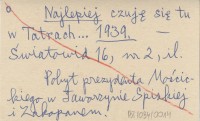 Najlepiej czuję się tu
w Tatrach... 1939. —
Światowid 16, nr 2, il.
Pobyt prezydenta Mościc-
kiego w Jaworzynie Spiskiej
i Zakopanem.